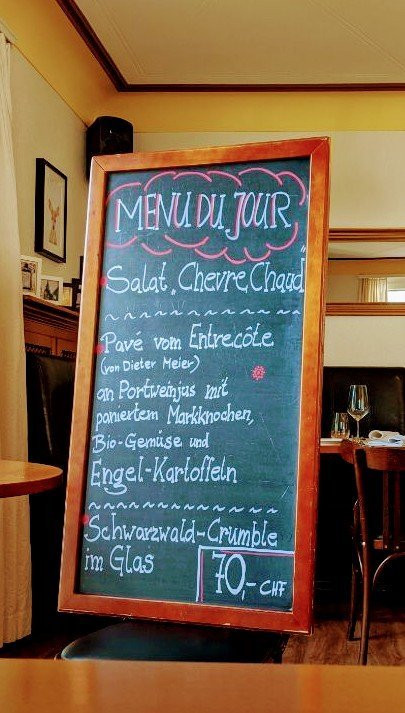 MENU DU JOUR
Salat „Chevre Chaud"
Pavé vom Entrecôte
(von Dieter Meier)
an Portweinjus mit
paniertem Markknochen,
Bio-Gemüse und
Engel-Kartoffeln
Schwarzwald-Crumble
im Glas
70,- CHF